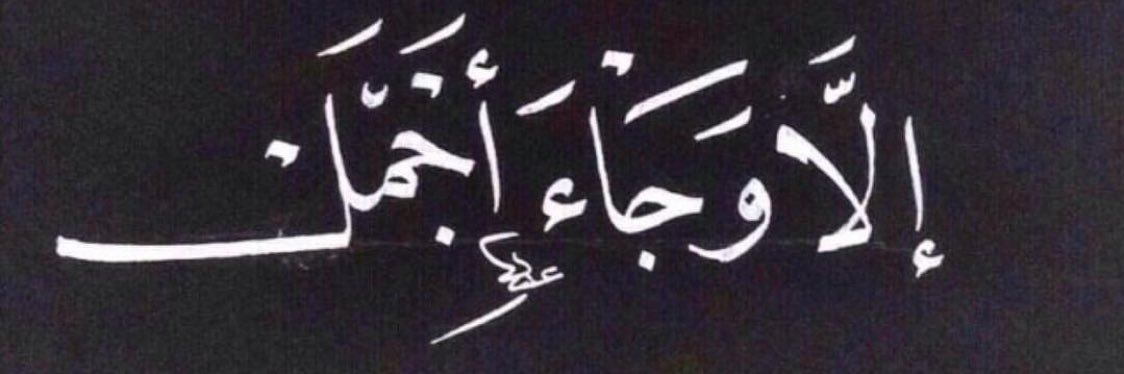 إلَّا وَجَاءَ أَجْمَل